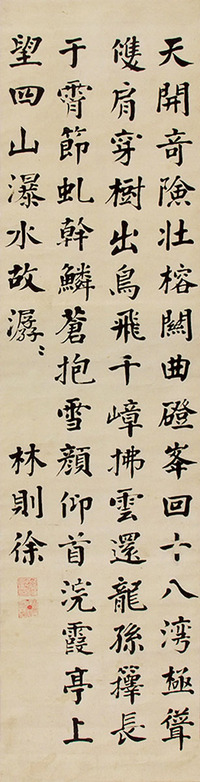 天開奇險壯榕關曲磴峯回十八灣極聳
雙肩穿樹出鳥飛千嶂拂雲還龍孫籜長
干霄節虬幹鱗蒼抱雪顏仰首浣霞亭上
望四山瀑水故潺〻
林則徐